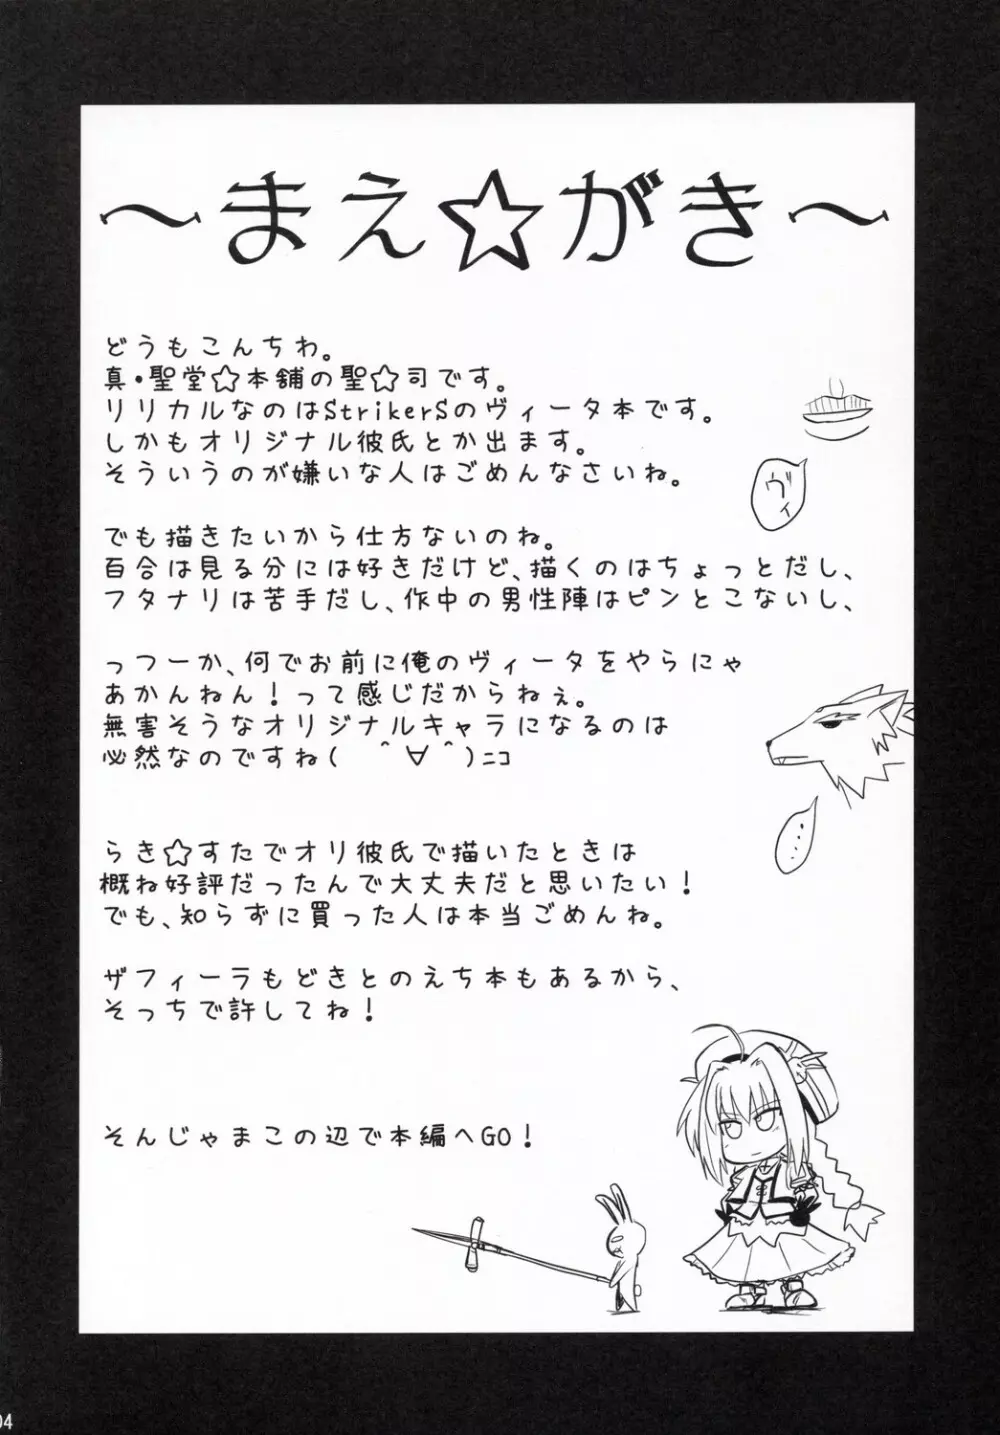 ～まえ☆がき～
どうもこんちわ。
真・聖堂☆本舗の聖☆司です。
リリカルなのはStrikerSのヴィータ本です。
しかもオリジナル彼氏とか出ます。
そういうのが嫌いな人はごめんなさいね。
ヴィ
でも描きたいから仕方ないのね。
百合は見る分には好きだけど、描くのはちょっとだし、
フタナリは苦手だし、作中の男性陣はピンとこないし、
っつーか、何でお前に俺のヴィータをやらにゃ
あかんねん！って感じだからねぇ。
無害そうなオリジナルキャラになるのは
必然なのですね( ＾∀＾)ﾆｺ
……
らき☆すたでオリ彼氏で描いたときは
概ね好評だったんで大丈夫だと思いたい！
でも、知らずに買った人は本当ごめんね。
ザフィーラもどきとのえち本もあるから、
そっちで許してね！
そんじゃまこの辺で本編へGO！
04